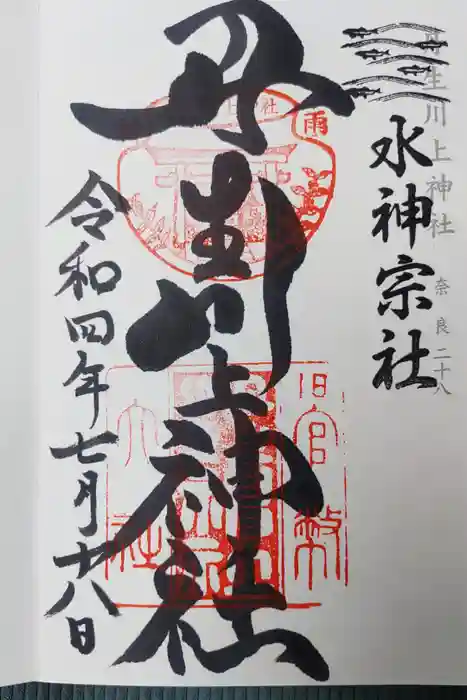 丹生川上神社
奈良二十八
水神宗社
丹生川上神社
令和四年七月十八日
雨
社
旧官幣
大社